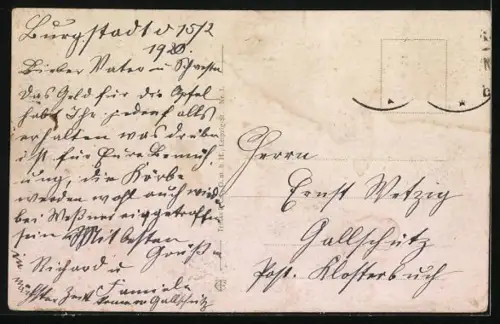 Burgstadt d 15/2
1920.
Lieber Vater u Schwester
das Geld für die Äpfel
habt Ihr jedenfalls
erhalten was drüber
ist für Eure Bemüh-
ung, die Körbe
werden wohl auch wieder
bei Meßner eingetroffen
sein Mit besten
Grüßen
Richard u
Familie
in nächster Zeit kommen Gallschütz
Herrn
Ernst Wetzig
Gallschütz
Post. Klosterbuch